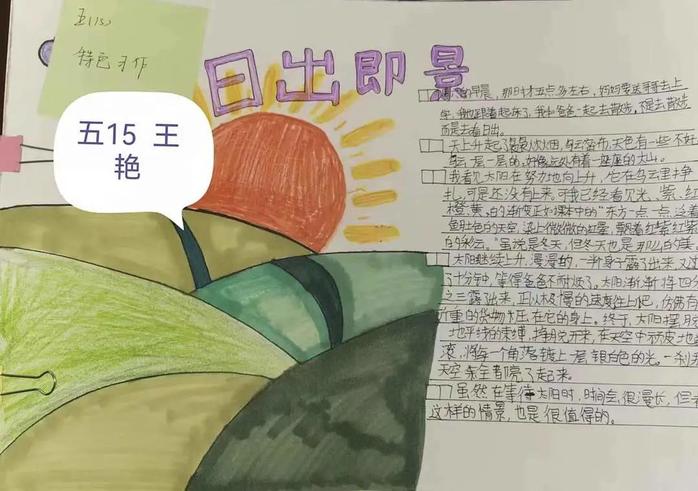 五(15)
特色习作
日出即景
五15 王
艳
的早晨，那时才五点多左右，妈妈要送哥哥去上
学，我也跟着起床了，我和爸爸一起去散步，不是去散步
而是去看日出。
天上升起了袅袅炊烟，乌云密布，天色有一些不好
乌云一层一层的，好像远处有着一座座的大山。
我看见太阳在努力地向上升，它在乌云里挣
扎，可是还没有上来。可我已经看见光、紫、红
橙、黄，的渐变正如课本中的“东方一点一点这
鱼肚色的天空，染上微微的红晕，飘着红紫红紫
的彩云。”虽说是冬天，但冬天也是那么的美
太阳继续上升，漫漫的，一半身子露了出来，又过
了十分钟，等得爸爸不耐烦了。太阳渐渐将四分
之三露出来，正以极慢的速度往上爬，仿佛有
重的货物压在它的身上。终于，太阳摆脱
地平线的束缚，挣脱开来，在天空中调皮地
滚，将每一个角落镀上一层银白色的光。一刹那
天空东全都亮了起来。
虽然在等待太阳时，时间会很漫长，但看
这样的情景，也是很值得的。